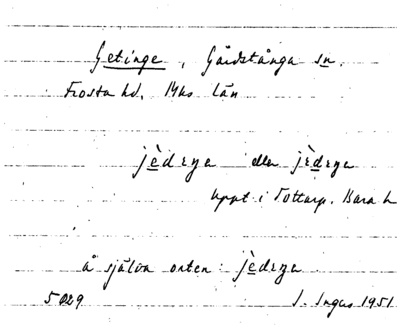 Getinge, Gårdstånga sn.
Frosta hd, Mhs län
jèdiŋa eller jèdiŋa
uppt i Tottarp, Bara h
å själva orten: jèdiŋa
5029 I. Ingus 1951